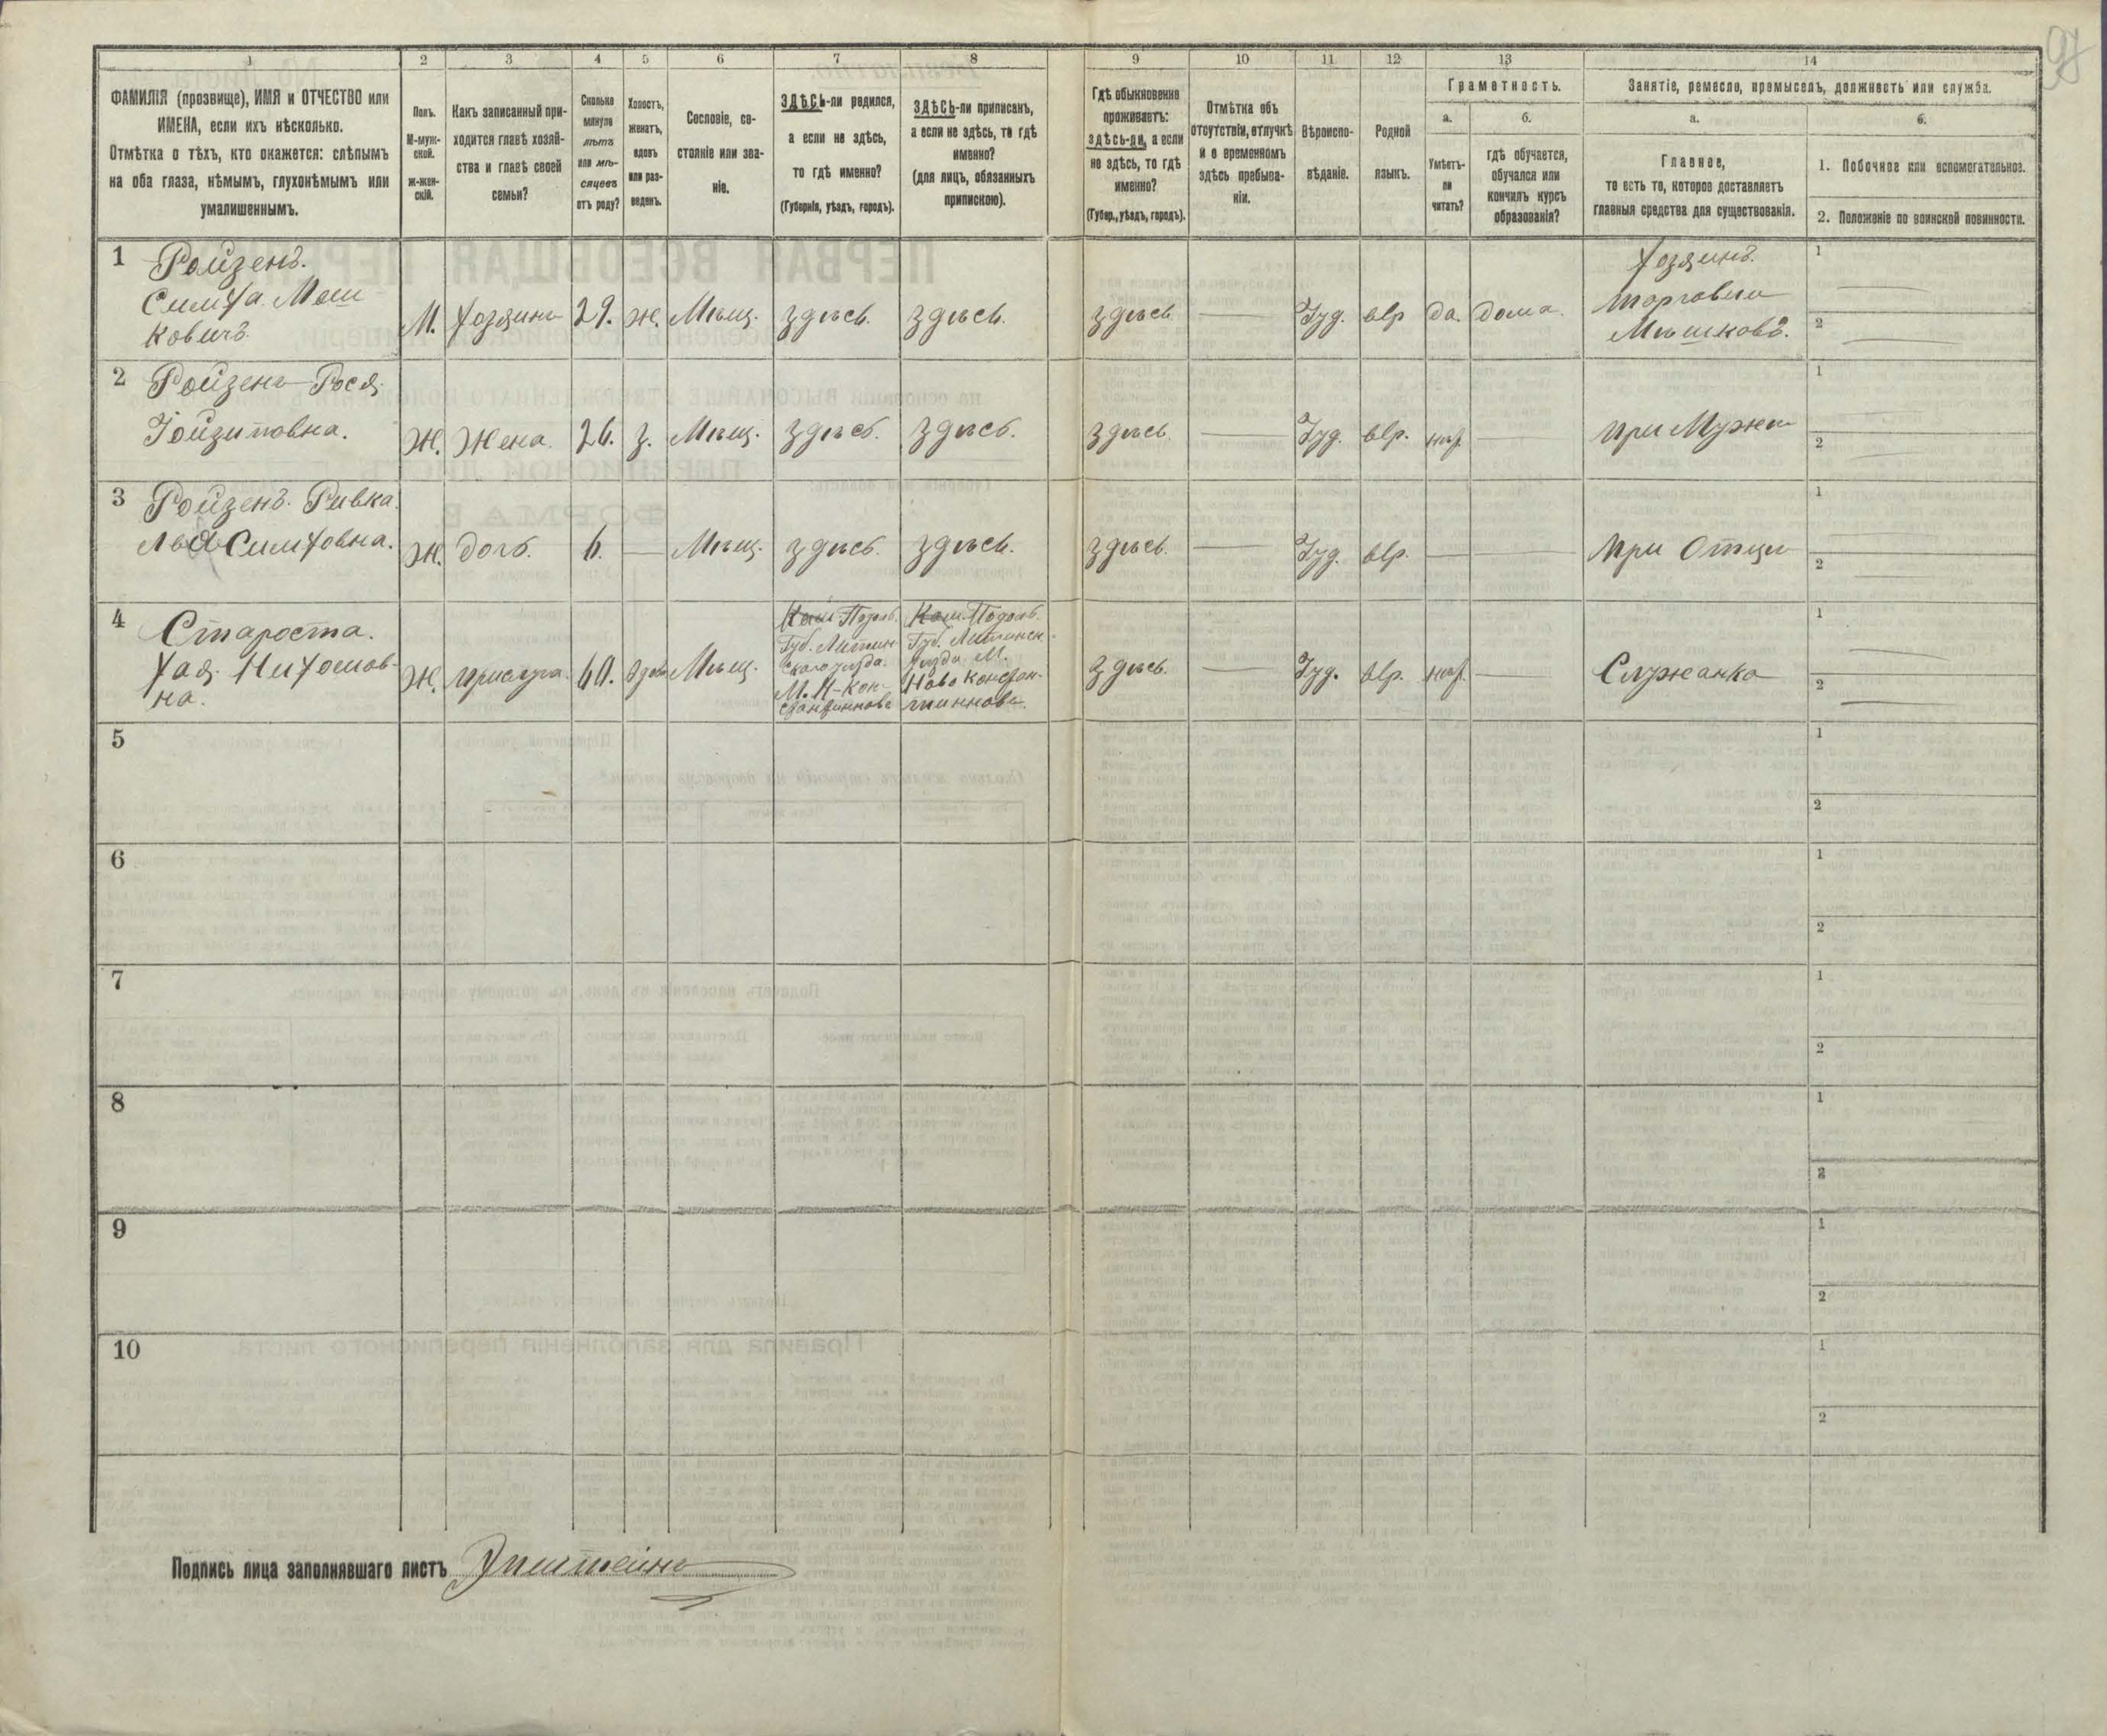 97
1 2 3 4 5 6 7 8 9 10 11 12 13 14
ФАМИЛІЯ (прозвище), ИМЯ и ОТЧЕСТВО или
ИМЕНА, если ихъ нѣсколько.
Отмѣтка о тѣхъ, кто окажется: слѣпымъ
на оба глаза, нѣмымъ, глухонѣмымъ или
умалишеннымъ.
Полъ.
М-муж-
ской.
ж-жен-
скій.
Какъ записанный при-
ходится главѣ хозяй-
ства и главѣ своей
семьи?
Сколько
минуло
лѣтъ
или мѣ-
сяцевъ
отъ роду?
Холостъ,
женатъ,
вдовъ
или раз-
веденъ.
Сословіе, со-
стояніе или зва-
ніе.
ЗДѢСЬ-ли родился,
а если не здѣсь,
то гдѣ именно?
(Губернія, уѣздъ, городъ).
ЗДѢСЬ-ли приписанъ,
а если не здѣсь, то гдѣ
именно?
(для лицъ, обязанныхъ
припискою).
Гдѣ обыкновенно
проживаетъ:
здѣсь-ли, а если
не здѣсь, то гдѣ
именно?
(Губер., уѣздъ, городъ).
Отмѣтка объ
отсутствіи, отлучкѣ
и о временномъ
здѣсь пребыва-
ніи.
Вѣроиспо-
вѣданіе.
Родной
языкъ.
Грамотность.
а.
Умѣетъ-
ли
читать?
б.
гдѣ обучается,
обучался или
кончилъ курсъ
образованія?
Занятіе, ремесло, промыселъ, должность или служба.
а.
Главное,
то есть то, которое доставляетъ
главныя средства для существованія.
б.
1. Побочное или вспомогательное.
2. Положеніе по воинской повинности.
1 Ройзенъ.
Симха Мош
ковичъ
М. Хозяинъ 29. Ж. Мѣщ. здѣсь. здѣсь. здѣсь Іуд. евр да. дома.
Хозяинъ.
торговли
Мѣшковъ.
1
2
2 Ройзенъ Рося
Іойзиповна.
Ж. Жена 26. З. Мѣщ. здѣсь. здѣсь. здѣсь Іуд. евр. при Мужѣ
1
2
3 Ройзенъ. Ривка
Лея Симховна.
Ж. дочь. 6. Мѣщ. здѣсь. здѣсь. здѣсь. Іуд. евр. При Отцѣ
1
2
4 Староста.
Хая Нихомов-
на.
Ж. прислуга. 60. Вдов. Мѣщ.
Подол.
Губ. Литин
скаго уѣзда.
М. Н-Кон-
стантиновѣ
Подол.
Губ. Литинск.
уѣзда М.
Ново Констан-
тиновѣ.
здѣсь. Іуд. евр. Служанка
1
2
5
1
2
6
1
2
7
1
2
8
1
2
9
1
2
10
1
2
Подпись лица заполнявшаго листъ